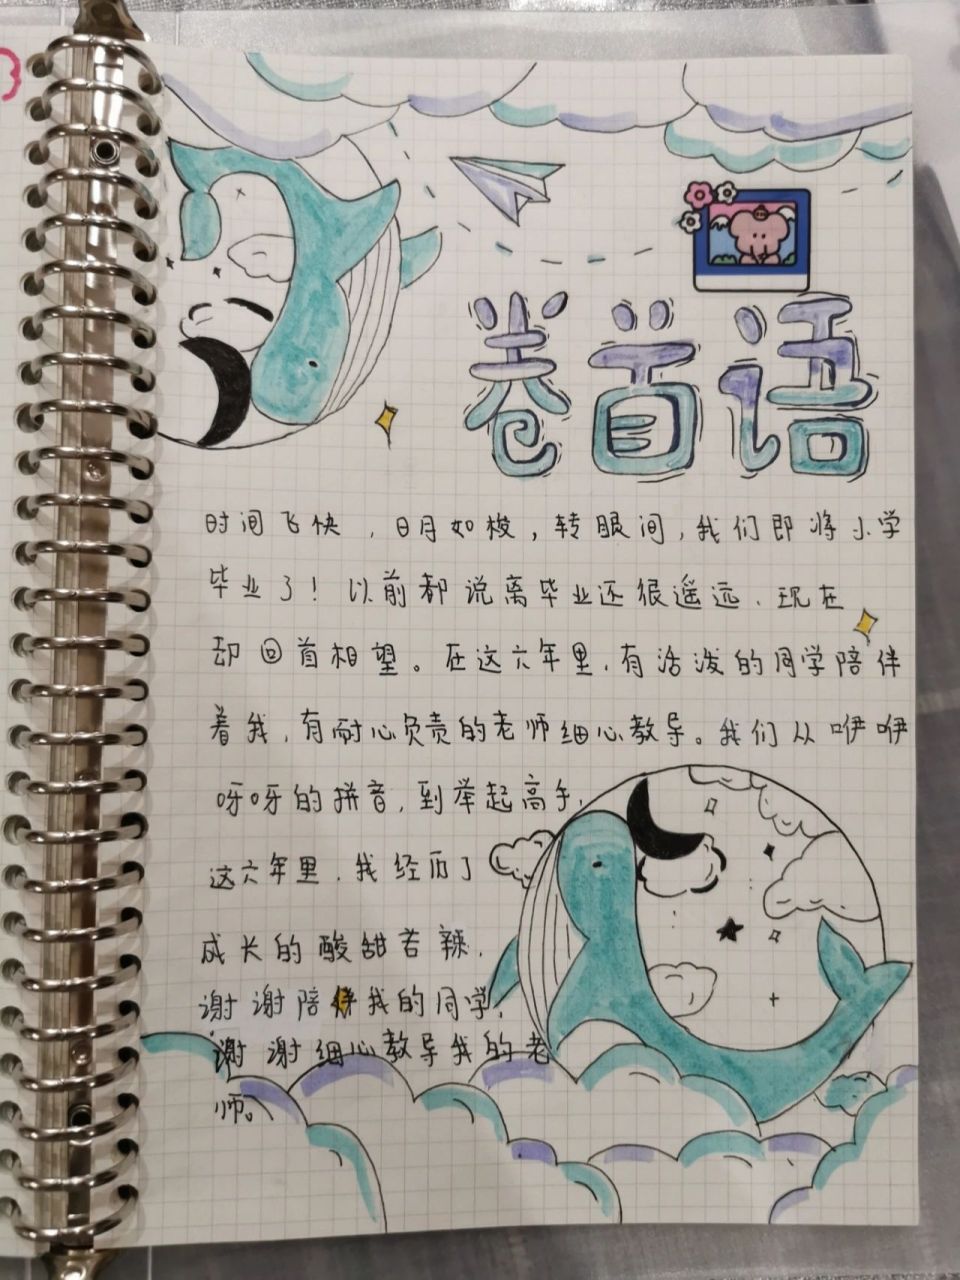 卷首语
时间飞快，日月如梭，转眼间，我们即将小学
毕业了！以前都说离毕业还很遥远、现在
却回首相望。在这六年里，有活泼的同学陪伴
着我，有耐心负责的老师细心教导。我们从咿咿
呀呀的拼音，到举起高手，
这六年里，我经历了
成长的酸甜苦辣，
谢谢陪伴我的同学，
谢谢细心教导我的老
师。